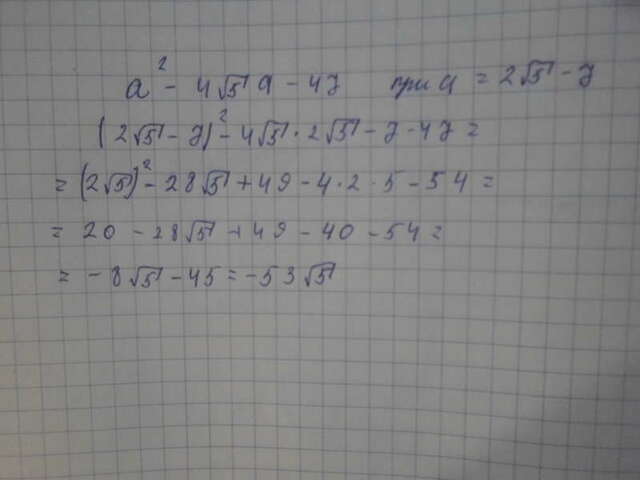 a² - 4√5 a - 47 при a = 2√5 - 7
(2√5 - 7)² - 4√5 · 2√5 - 7 - 47 =
= (2√5)² - 28√5 + 49 - 4 · 2 · 5 - 54 =
= 20 - 28√5 + 49 - 40 - 54 =
= - 8√5 - 45 = - 53√5